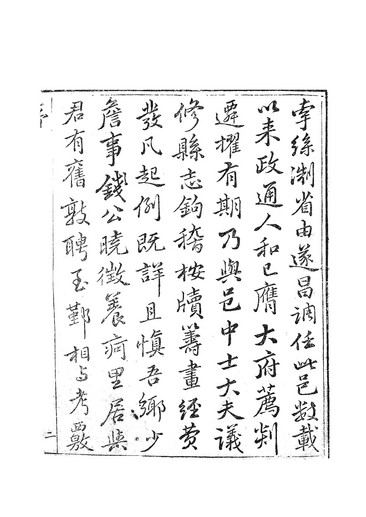 牽絲淛省由遂昌調任此邑数載
以来政通人和已膺大府薦剡
遷擢有期乃與邑中士大夫議
修縣志鉤稽桉牘籌畫經費
發凡起例既詳且慎吾鄉少
詹事錢公曉徴養疴里居與
君有舊敦聘至鄞相与考覈
序
二